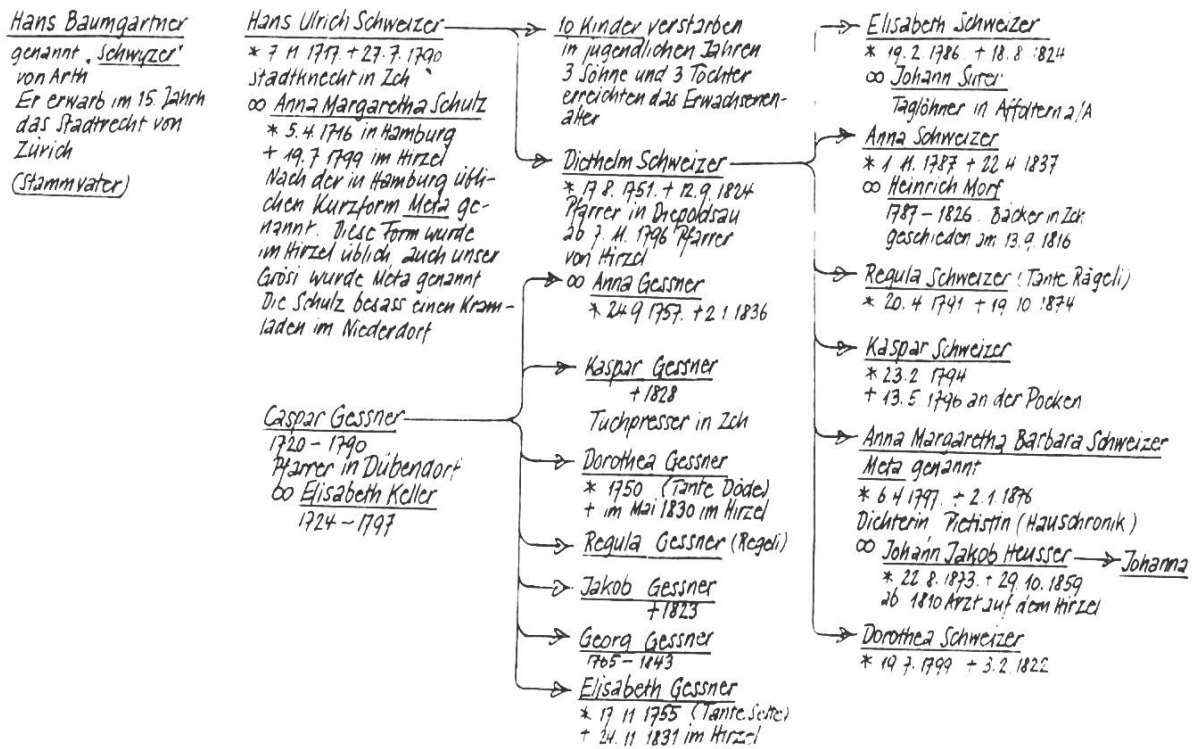 Hans Baumgartner
genannt "Schwyzer"
von Arth
Er erwarb im 15. Jahrh
das Stadtrecht von
Zürich
(Stammvater)
Hans Ulrich Schweizer
* 7 11 1717. + 27. 7. 1790
Stadtknecht in Zch
∞ Anna Margaretha Schulz
* 5. 4. 1716 in Hamburg
+ 19. 7 1799 im Hirzel
Nach der in Hamburg übli-
chen Kurzform Meta ge-
nannt. Diese Form wurde
im Hirzel üblich, auch unser
Grösi wurde Meta genannt
Die Schulz besass einen Kram-
laden im Niederdorf
Caspar Gessner
1720 – 1790
Pfarrer in Dübendorf
∞ Elisabeth Keller
1724 – 1797
10 Kinder verstarben
in jugendlichen Jahren
3 Söhne und 3 Töchter
erreichten das Erwachsenen-
alter
Diethelm Schweizer
* 17 8. 1751. + 12. 9. 1824
Pfarrer in Diepoldsau
ab 7. 11. 1796 Pfarrer
von Hirzel
∞ Anna Gessner
* 24 9 1757. + 2 1 1836
Kaspar Gessner
+ 1828
Tuchpresser in Zch
Dorothea Gessner
* 1750 (Tante Döde)
+ im Mai 1830 im Hirzel
Regula Gessner (Regeli)
Jakob Gessner
+ 1823
Georg Gessner
1765 – 1843
Elisabeth Gessner
* 17 11 1755 (Tante Sette)
+ 24. 11 1831 im Hirzel
Elisabeth Schweizer
* 19. 2. 1786 + 18. 8. 1824
∞ Johann Surer
Taglöhner in Affoltern a/A
Anna Schweizer
* 1 11. 1787 + 22 4 1837
∞ Heinrich Morf
1787 – 1826. Bäcker in Zch
geschieden am 13. 9. 1816
Regula Schweizer (Tante Rägeli)
* 20. 4 1791 + 19 10 1874
Kaspar Schweizer
* 23. 2 1794
+ 13. 5. 1796 an der Pocken
Anna Margaretha Barbara Schweizer
Meta genannt
* 6 4 1797. + 2. 1. 1876
Dichterin, Pietistin (Hauschronik)
∞ Johann Jakob Heusser
* 22. 8. 1873. + 29. 10. 1859
ab 1810 Arzt auf dem Hirzel
Johanna
Dorothea Schweizer
* 19 7. 1799 + 3. 2. 1822